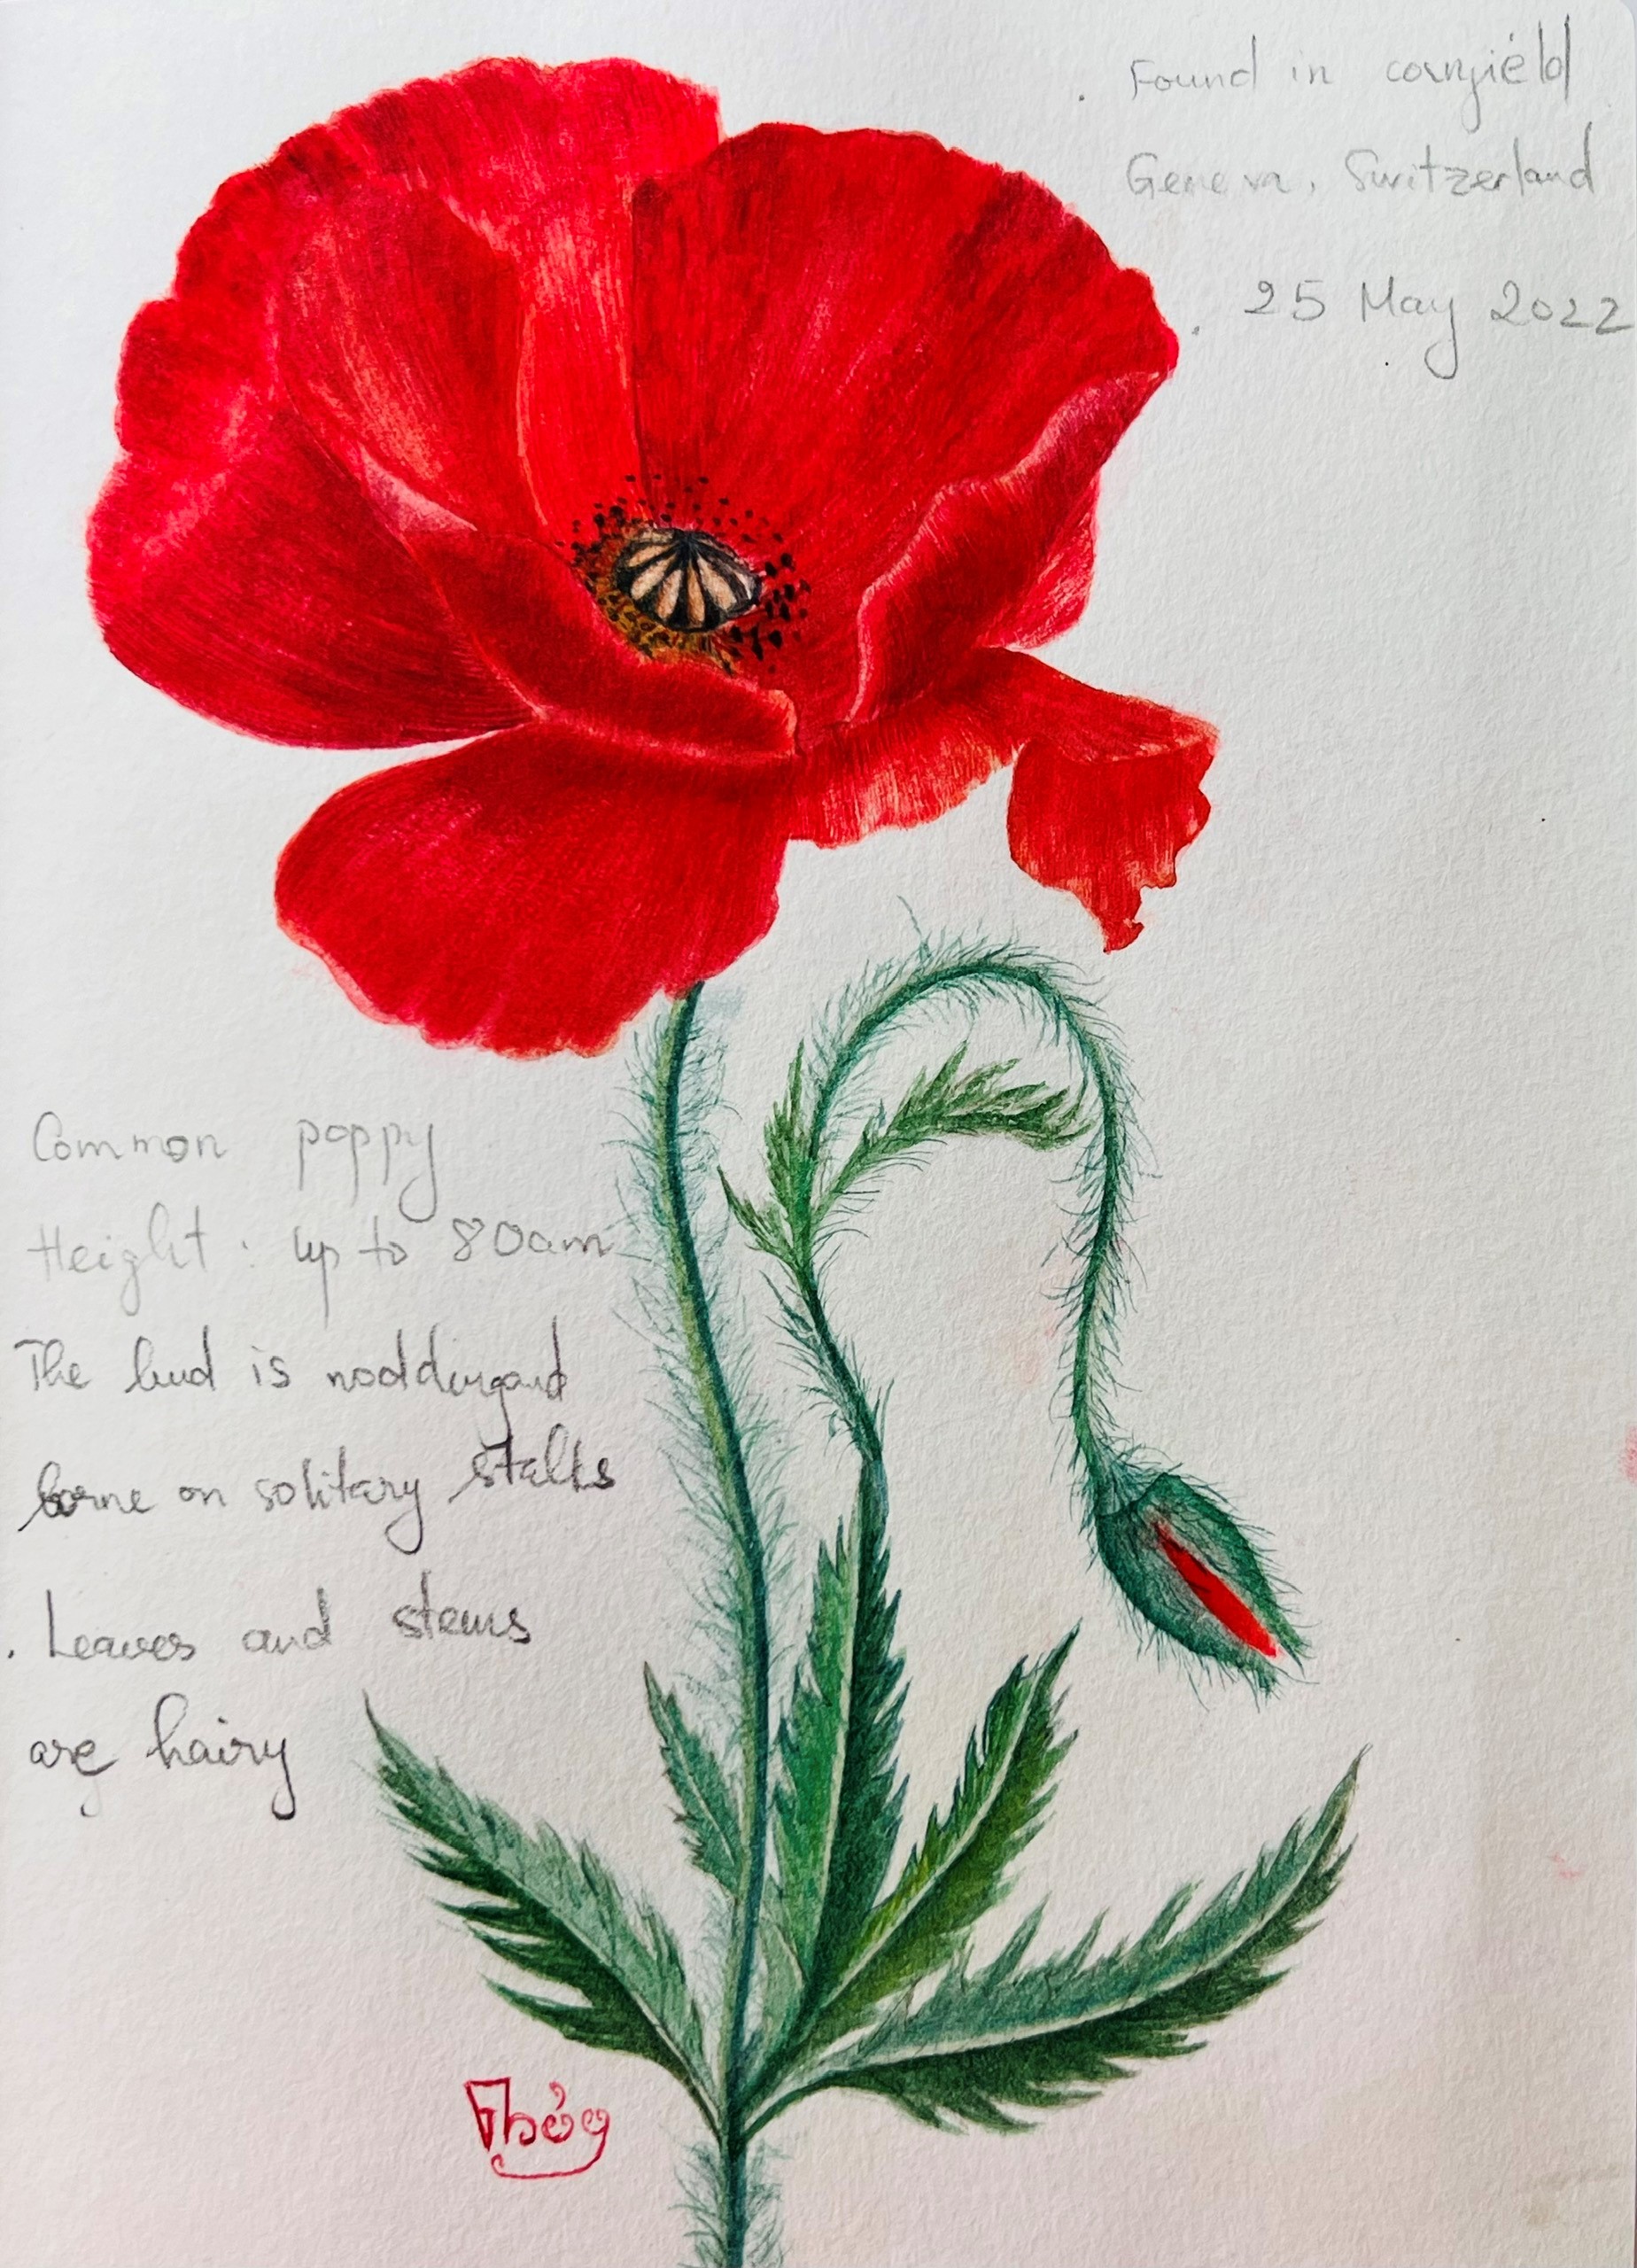 . Found in cornfield
Geneva, Switzerland
. 25 May 2022
Common poppy
Height : up to 80cm
The bud is nodding and
borne on solitary stalks
. Leaves and stems
are hairy